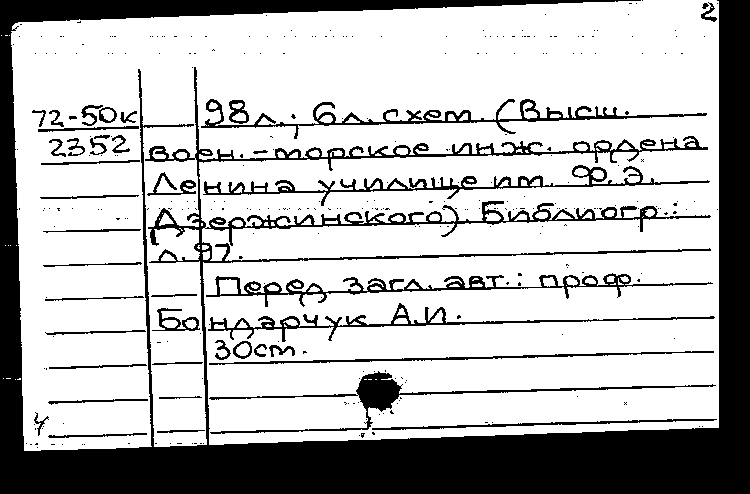 2
72-50к 98л.; 6л. схем. (Высш.
2352 воен.-морское инж. ордена
Ленина училище им. Ф.Э.
Дзержинского). Библиогр.:
л. 97.
Перед загл. авт.: проф.
Бондарчук А.И.
30см.
4